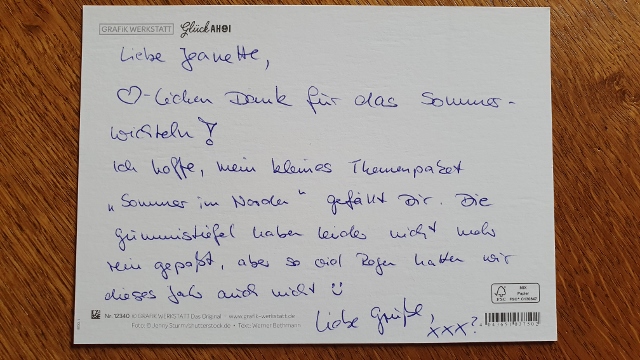 GRAFIK WERKSTATT Glück AHOI
Liebe Jeanette,
♡-lichen Dank für das Sommer-
wichteln!
Ich hoffe, mein kleines Themenpaket
„Sommer im Norden" gefällt Dir. Die
Gummistiefel haben leider nicht mehr
rein gepaßt, aber so viel Regen hatten wir
dieses Jahr auch nicht ☺
Liebe Grüße,
xxx?
MIX
Papier
FSC
Nr. 12340 © GRAFIK WERKSTATT Das Original www.grafik-werkstatt.de
Foto: © Jenny Sturm/shutterstock.de • Text: Werner Bethmann